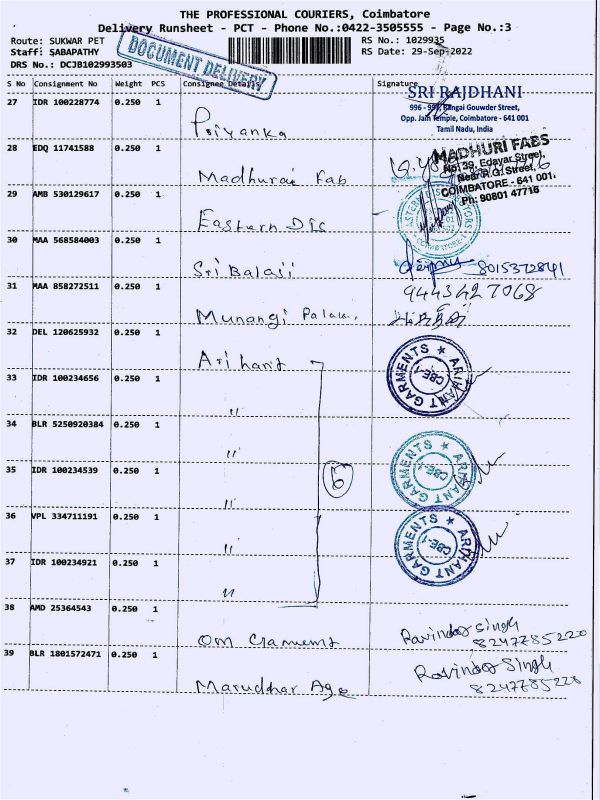 THE PROFESSIONAL COURIERS, Coimbatore
Delivery Runsheet - PCT - Phone No.:0422-3505555 - Page No.:3
Route: SUKWAR PET
RS No.: 1029935
Staff: SABAPATHY
RS Date: 29-Sep-2022
DRS No.: DCJB102993503
DOCUMENT DELIVERY
S No Consignment No Weight PCS Consignee Details Signature
27 IDR 100228774 0.250 1
Priyanka
SRI RAJDHANI
996 - 997, Rangai Gowder Street,
Opp. Jain Temple, Coimbatore - 641 001
Tamil Nadu, India
28 EDQ 11741588 0.250 1
Madhurai Fab
MADHURI FABS
No: 39, Edayar Street,
Near R.G. Street,
COIMBATORE - 641 001.
Ph: 90801 47716
29 AMB 530129617 0.250 1
Eastern Dis
30 MAA 568584003 0.250 1
Sri Balaji
8015372841
31 MAA 858272511 0.250 1
Munangi
9443427068
32 DEL 120625932 0.250 1
Arihant
ARIHANT GARMENTS ★ CBE-1
33 IDR 100234656 0.250 1
"
34 BLR 5250920384 0.250 1
"
ARIHANT GARMENTS ★ CBE-1
35 IDR 100234539 0.250 1
"
6
36 VPL 334711191 0.250 1
"
ARIHANT GARMENTS ★ CBE-1
37 IDR 100234921 0.250 1
"
38 AMD 25364543 0.250 1
Om
Ravinder Singh
8247785220
39 BLR 1801572471 0.250 1
Marudhar Age
Ravinder Singh
8247785220